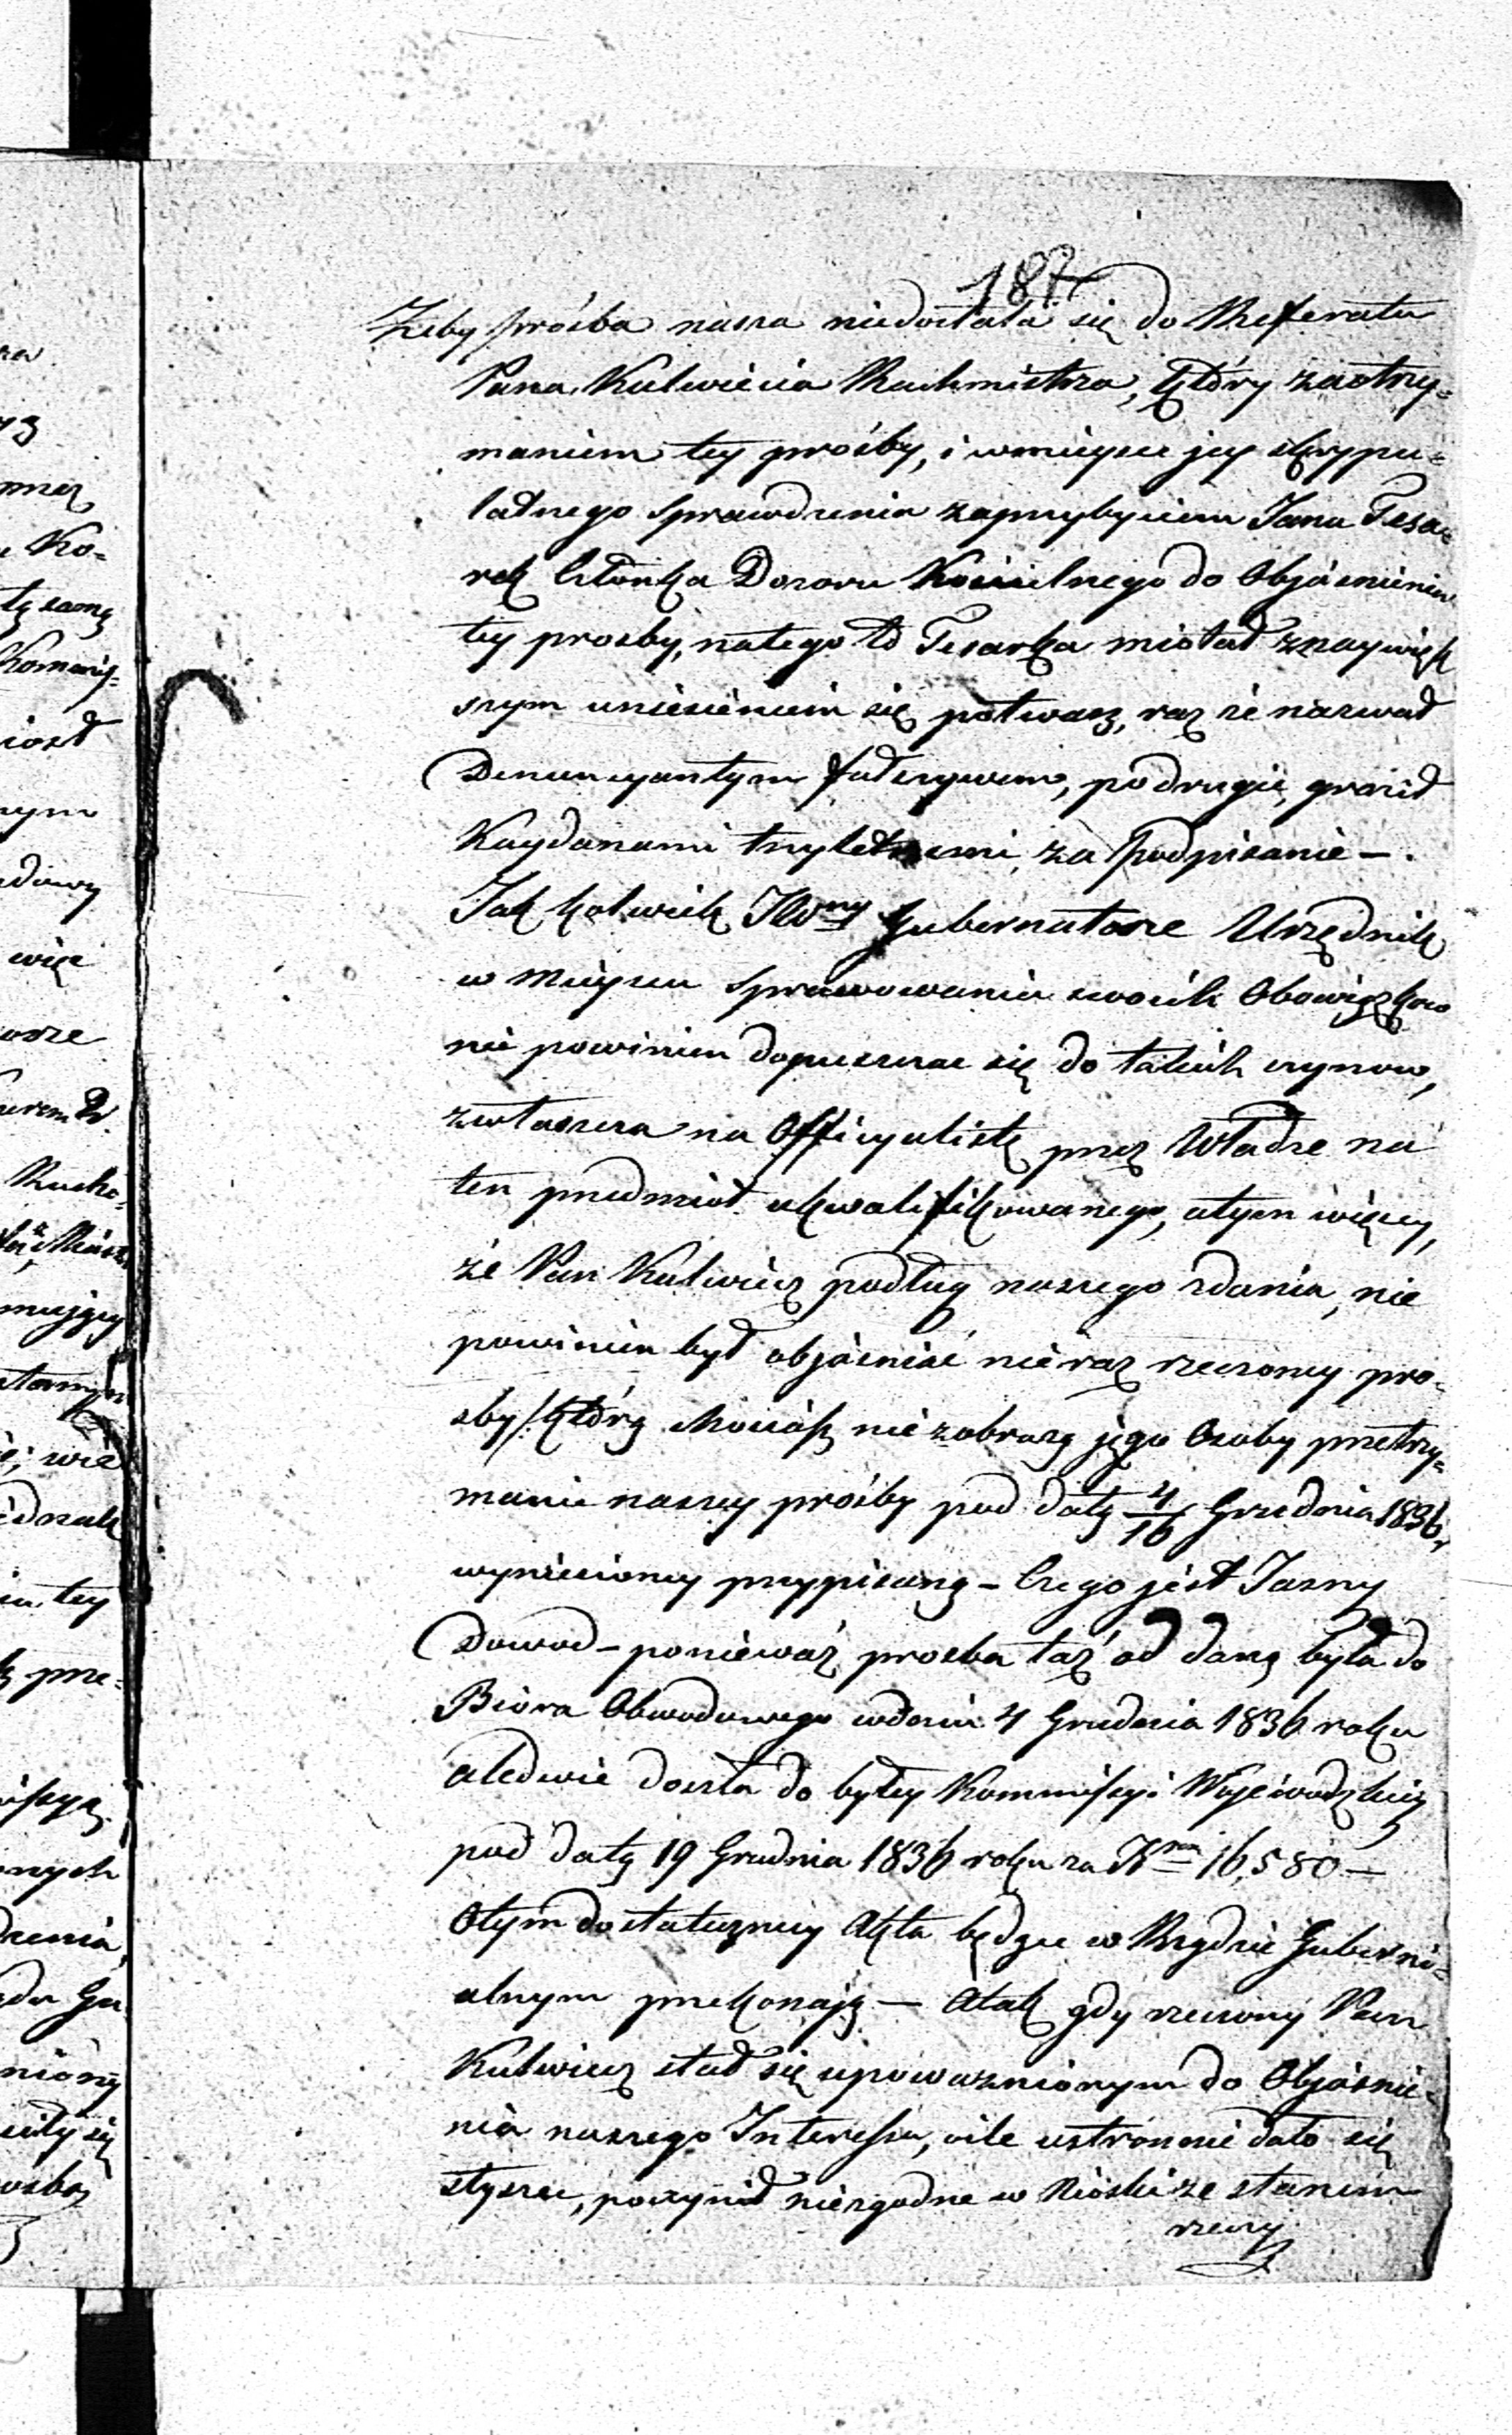 187
Żeby prośba nasza niedostała się do Referatu
Pana Kulwiecia Rachmistrza, który zaotrzy=
maniem tey prośby, i wmieysce jey skrypu=
latnego sprawdzenia zaprzybyciem Jana Tesa=
rek Członka Dozoru Kościelnego do Objaśnienia
tey prosby, natego to Tesarka miotał znaywięk
szym uniesieniem się potwarz, raz że nazwał
Denuncyantym fałszywem, podrugie, groził
Kaydanami trzyletniemi, za podpisanie —.
Jak kolwiek JWny Gubernatorze Urzędnik
w mieyscu sprawowania swoich Obowiązkow
nie powinien dopuszczac się do takich czynow,
zwłaszcza na Officyalistę przez Władze na
ten przedmiot ukwalifikowanego, atym więcey,
że Pan Kulwiec podług naszego zdania, nie
powinien był objaśniać nieraz rzeczoney pro=
sby/którą Mociąsk niezobrazą jego Osoby przetrzy=
manie naszey prośby pod datą 4/16 Grudnia 1836
wyniesioney przypisaną — Czego jest Jasny
Dowod — ponieważ prosba taż od daną była do
Biora Obwodowego wdniu 4 Grudnia 1836 roku
aledwie doszła do byłey Kommissyi Woiewodzkiey
pod datą 19 Grudnia 1836 roku za Nrem 16,580 —
Otym dostateczniey Akta będące w Rządzie Guberni=
alnym przekonają — Atak gdy rzeczony Pan
Kulwiec stał się upoważnionym do Objaśnie=
nia naszego Interessu, oile ustronnie dało się
słyszec, poczynił niezgodne w Nioski ze stanem
rzeczy